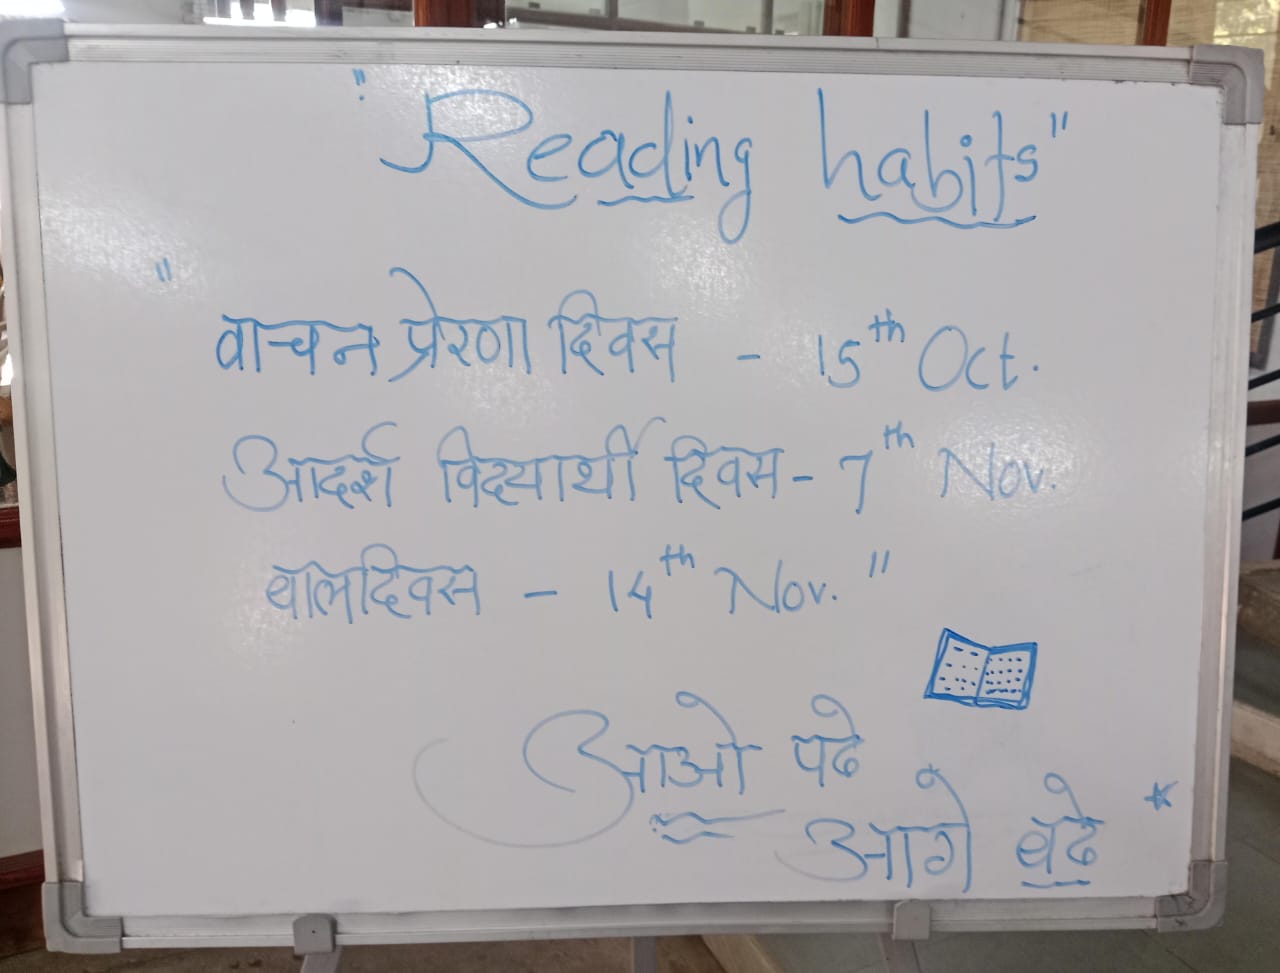 "Reading habits"
"
वाचन प्रेरणा दिवस - 15th Oct.
आदर्श विद्यार्थी दिवस - 7th Nov.
बालदिवस - 14th Nov."
आओ पढे
आगे बढे *